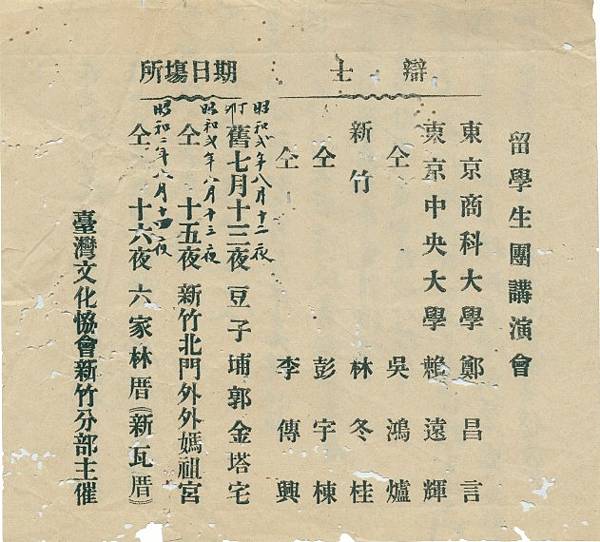 留學生團講演會
辯士
東京商科大學 鄭昌言
東京中央大學 賴遠輝
仝 吳鴻爐
新竹 林冬桂
仝 彭宇棟
仝 李傳興
期日場所
昭和弍年八月十二夜
舊七月十三夜 豆子埔郭金塔宅
昭和弍年八月十三夜
仝 十五夜 新竹北門外外媽祖宮
昭和二年八月十四夜
仝 十六夜 六家林厝(新瓦厝)
臺灣文化恊會新竹分部主催